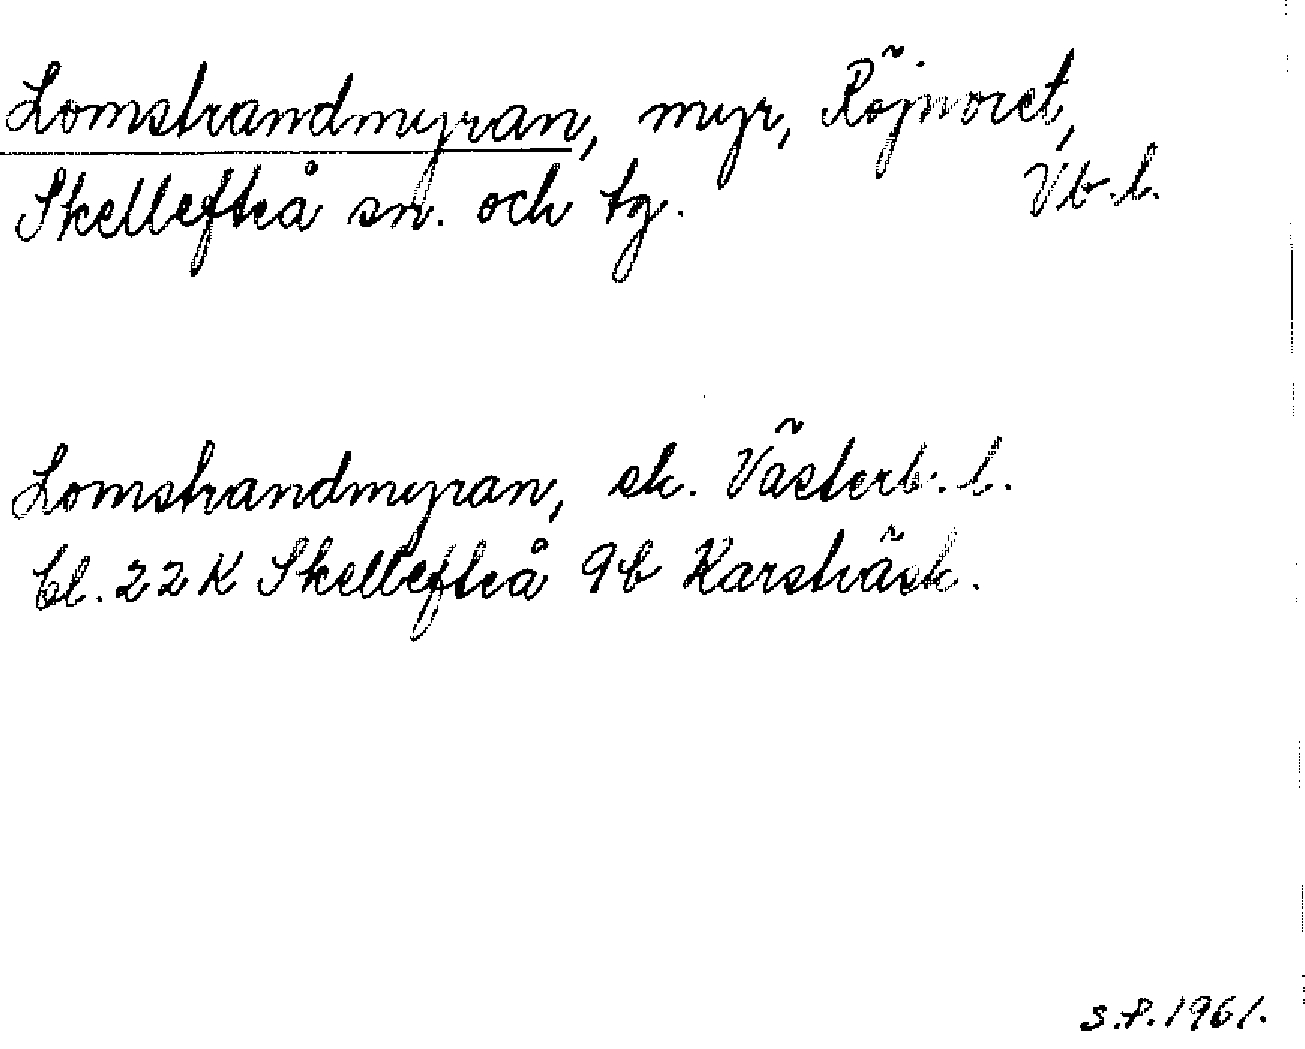 Lomstrandmyran, myr, Röjnoret,
Skellefteå sn. och tg. Vb. l.
Lomstrandmyran, sk. Västerb. l.
Bl. 22 K Skellefteå 9b Karsträsk.
S.P. 1961.